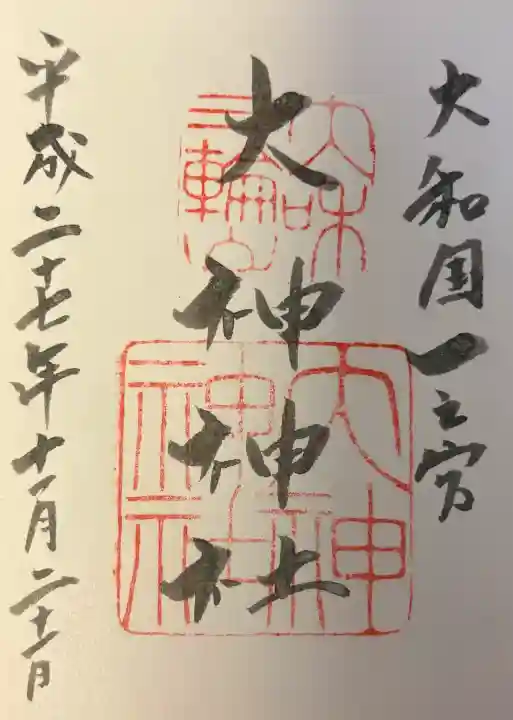 大和国一之宮
大神神社
平成二十七年十一月二十一日
大和
三輪山
大神神社